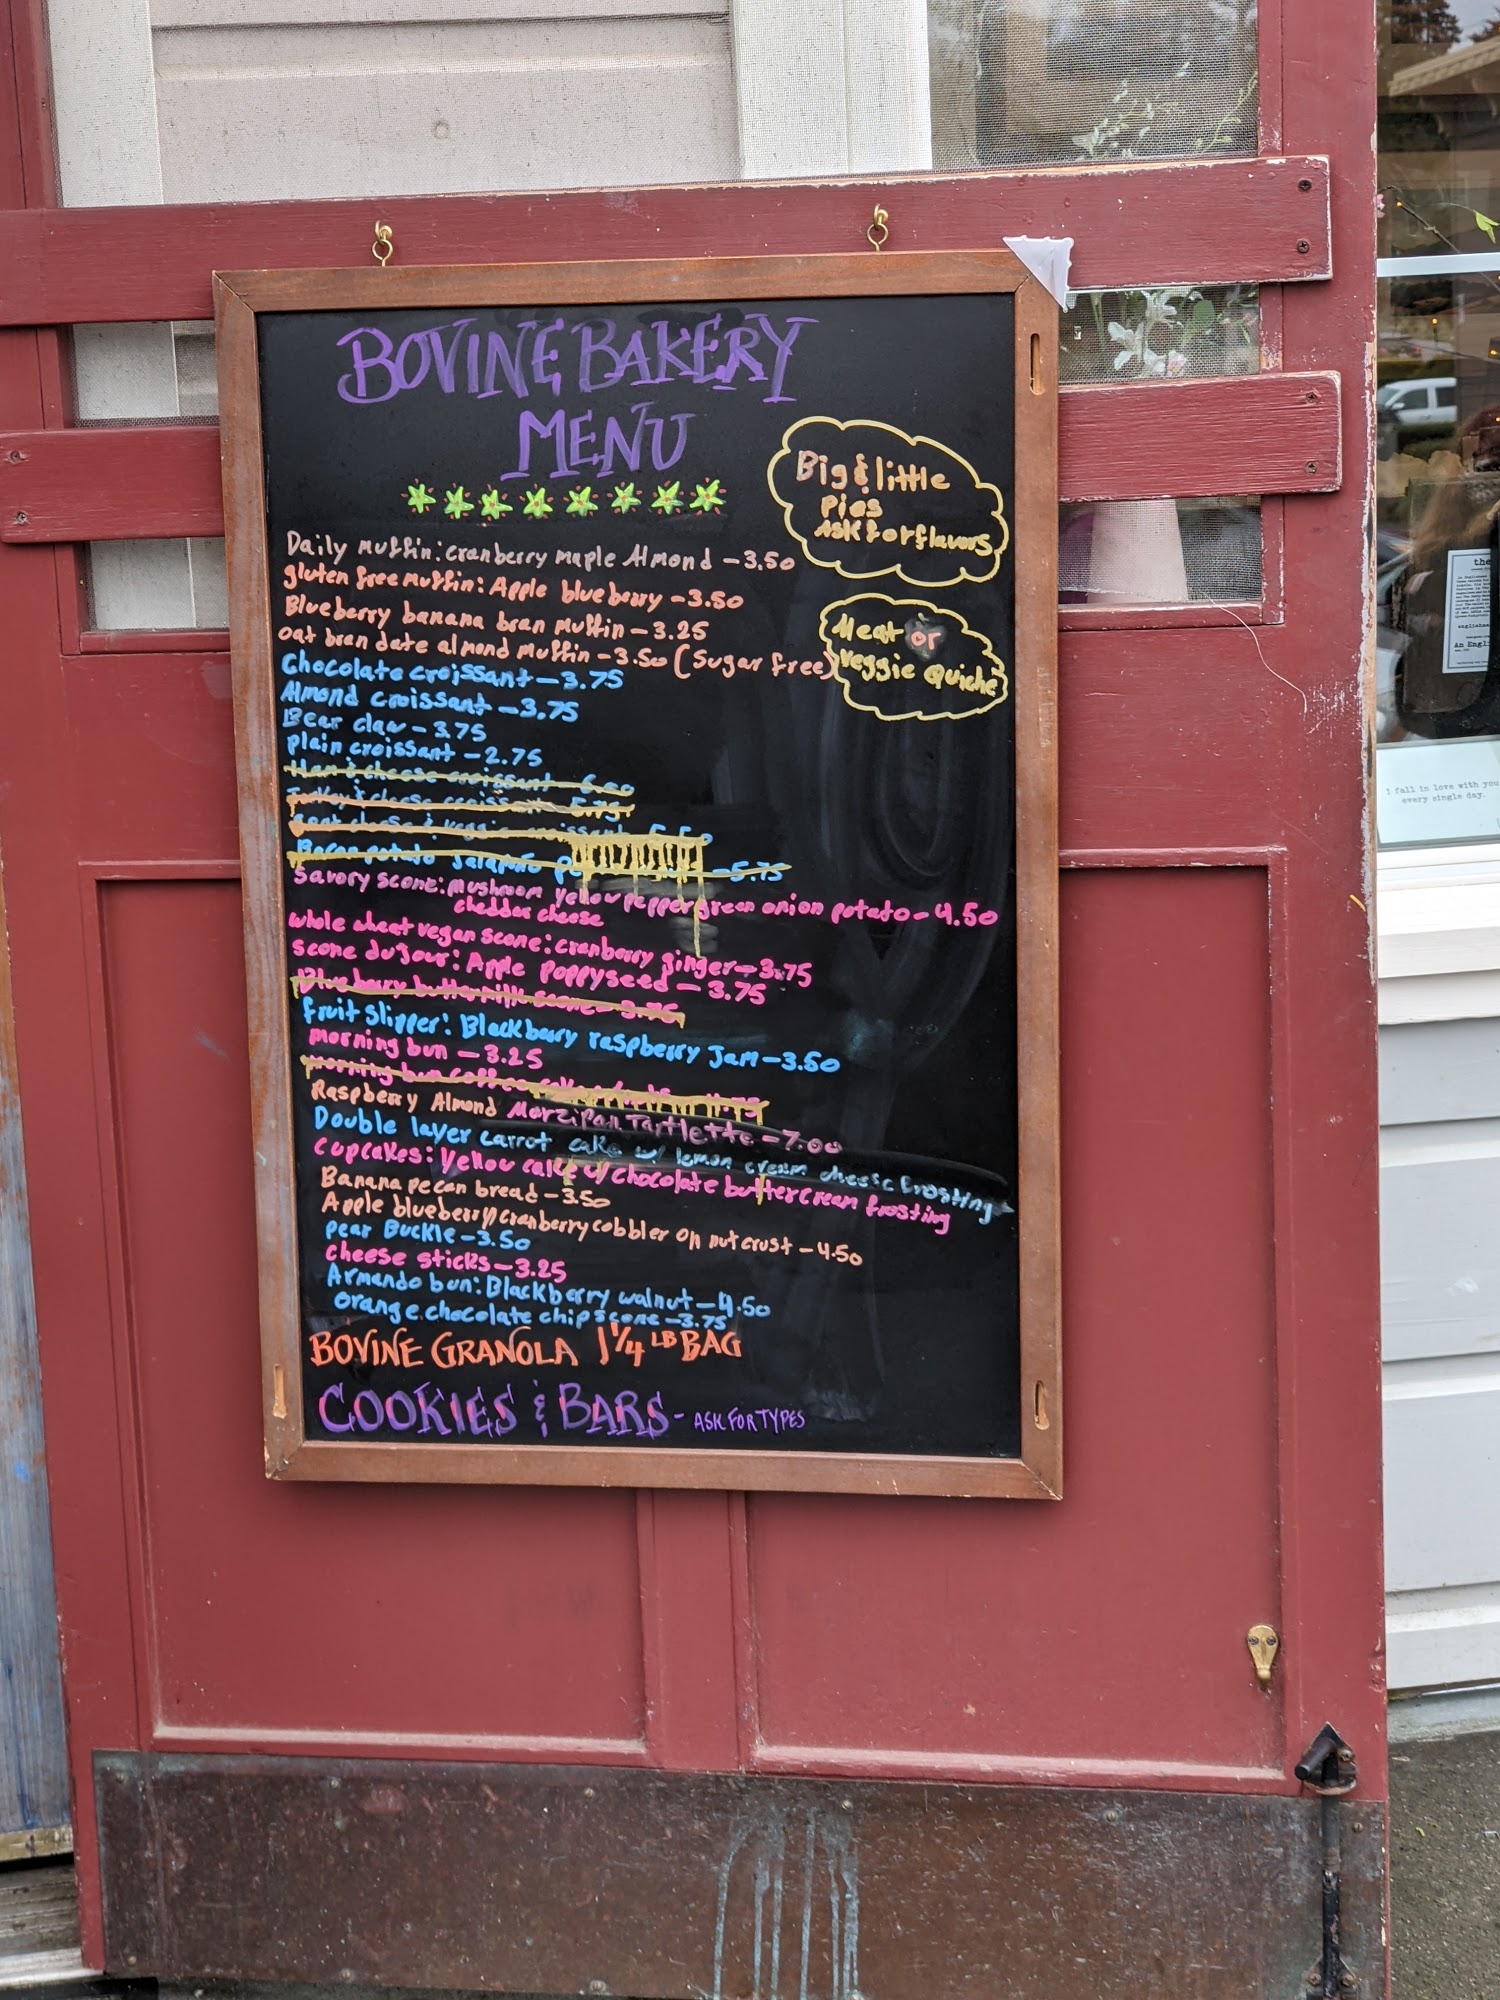 BOVINE BAKERY
MENU
Big & little
Pies
Ask for flavors
Meat or
Veggie Quiche
Daily muffin: cranberry maple Almond - 3.50
gluten free muffin: Apple blueberry - 3.50
Blueberry banana bran muffin - 3.25
oat bran date almond muffin - 3.50 (sugar free)
Chocolate croissant - 3.75
Almond croissant - 3.75
Bear claw - 3.75
plain croissant - 2.75
Ham & cheese croissant - 6.00
Turkey & cheese croissant - 5.75
Goat cheese & veggie croissant - 5.50
Bacon potato Jalapeño - 5.75
savory scone: mushroom yellow pepper green onion potato - 4.50
cheddar cheese
whole wheat vegan scone: cranberry ginger - 3.75
scone du jour: Apple poppyseed - 3.75
Blueberry buttermilk scone - 3.75
fruit slipper: Blackberry raspberry jam - 3.50
morning bun - 3.25
morning bun coffee cake 4.75
Raspberry Almond Marzipan Tartlette - 7.00
Double layer carrot cake w/ lemon cream cheese frosting
cupcakes: yellow cake w/ chocolate buttercream frosting
Banana pecan bread - 3.50
Apple blueberry cranberry cobbler on nut crust - 4.50
pear Buckle - 3.50
cheese sticks - 3.25
Armando bun: Blackberry walnut - 4.50
orange chocolate chip scone - 3.75
BOVINE GRANOLA 1 1/4 LB BAG
COOKIES & BARS - ASK FOR TYPES
the
An Engl
I fall in love with you
every single day.